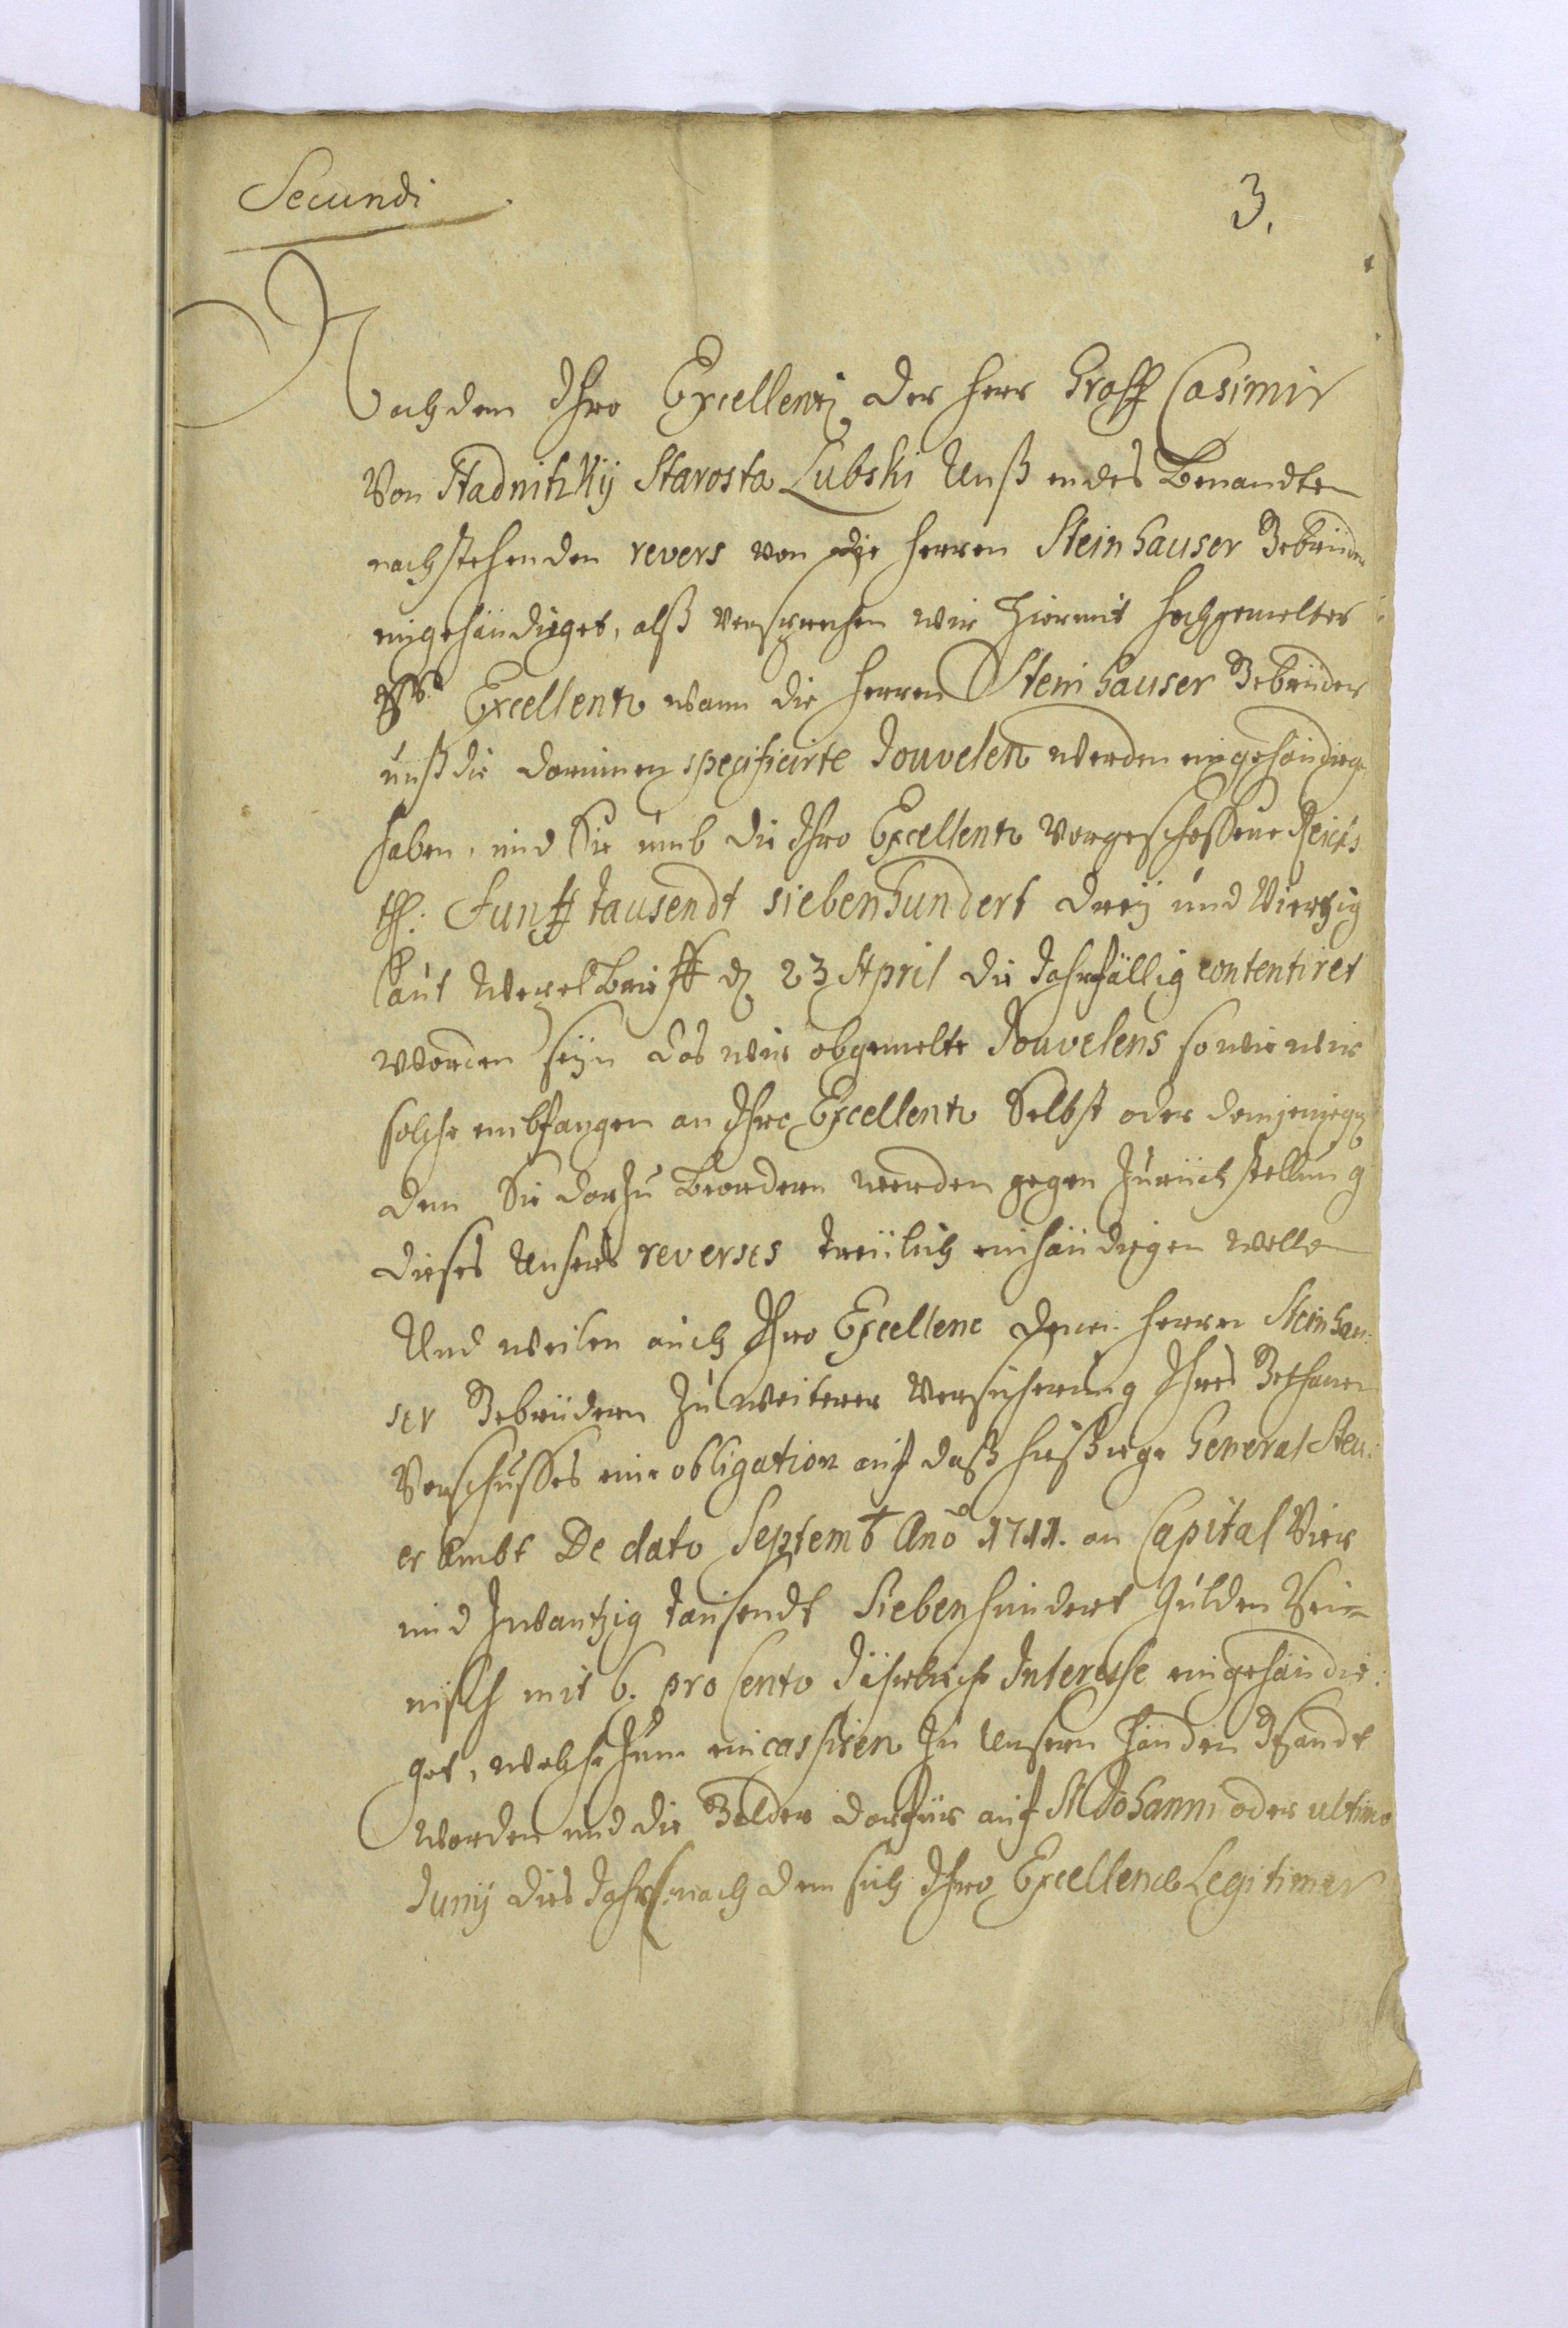 Secundi
3.
Nachdem Ihro Excellentz der Herr Graff Casimir
Von Stadnitzkÿ Starosta Lubski Unß endes Benandten
nachstehenden revers von die Herren Steinhauser Gebrüder
eingehändiget, alß versprechen wir hiermit hochgemelter
Excellentz wann die Herren Steinhauser Gebrüder
unß die darinnen specificirte Jouvelen werden eingehändiget
haben, und Sie umb die Ihro Excellentz Vorgeschossene Reichs
thl. Funff tausendt siebenhundert dreÿ und Viertzig
laut Wexelbrieff d 23 April die Jahr fällig contentiret
worden seÿn das wir obgemelte Jouvelens so wie wir
solche embfangen an Ihro Excellentz Selbst oder demjenigen
dem Sie darzu Beordern werden gegen Zurückstellung
dieses Unsers reverses treülich einhändigen wollen
Und weilen auch Ihro Excellenc denen Herren Steinhau:
ser Gebrüdern zu weiterer Versicherung Ihres Gethanen
Vorschusses eine obligation auf daß hießiege General Steu:
er Ambt De dato Septemb Ano 1711. an Capital Vier
und Zwantzig tausendt Siebenhundert Gulden Rei=
nisch mit 6. pro Cento Jährliche Interesse eingehändi:
get, welche zum eincassiren in Unsern Händen
worden und die Gelder darfür auf St Johanni oder ultimo
Junÿ dies Jahrs nach dem sich Ihro Excellence Legitimer